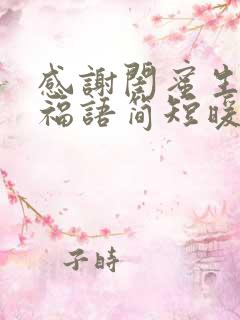 感謝閨蜜生
福語简短暖
子時